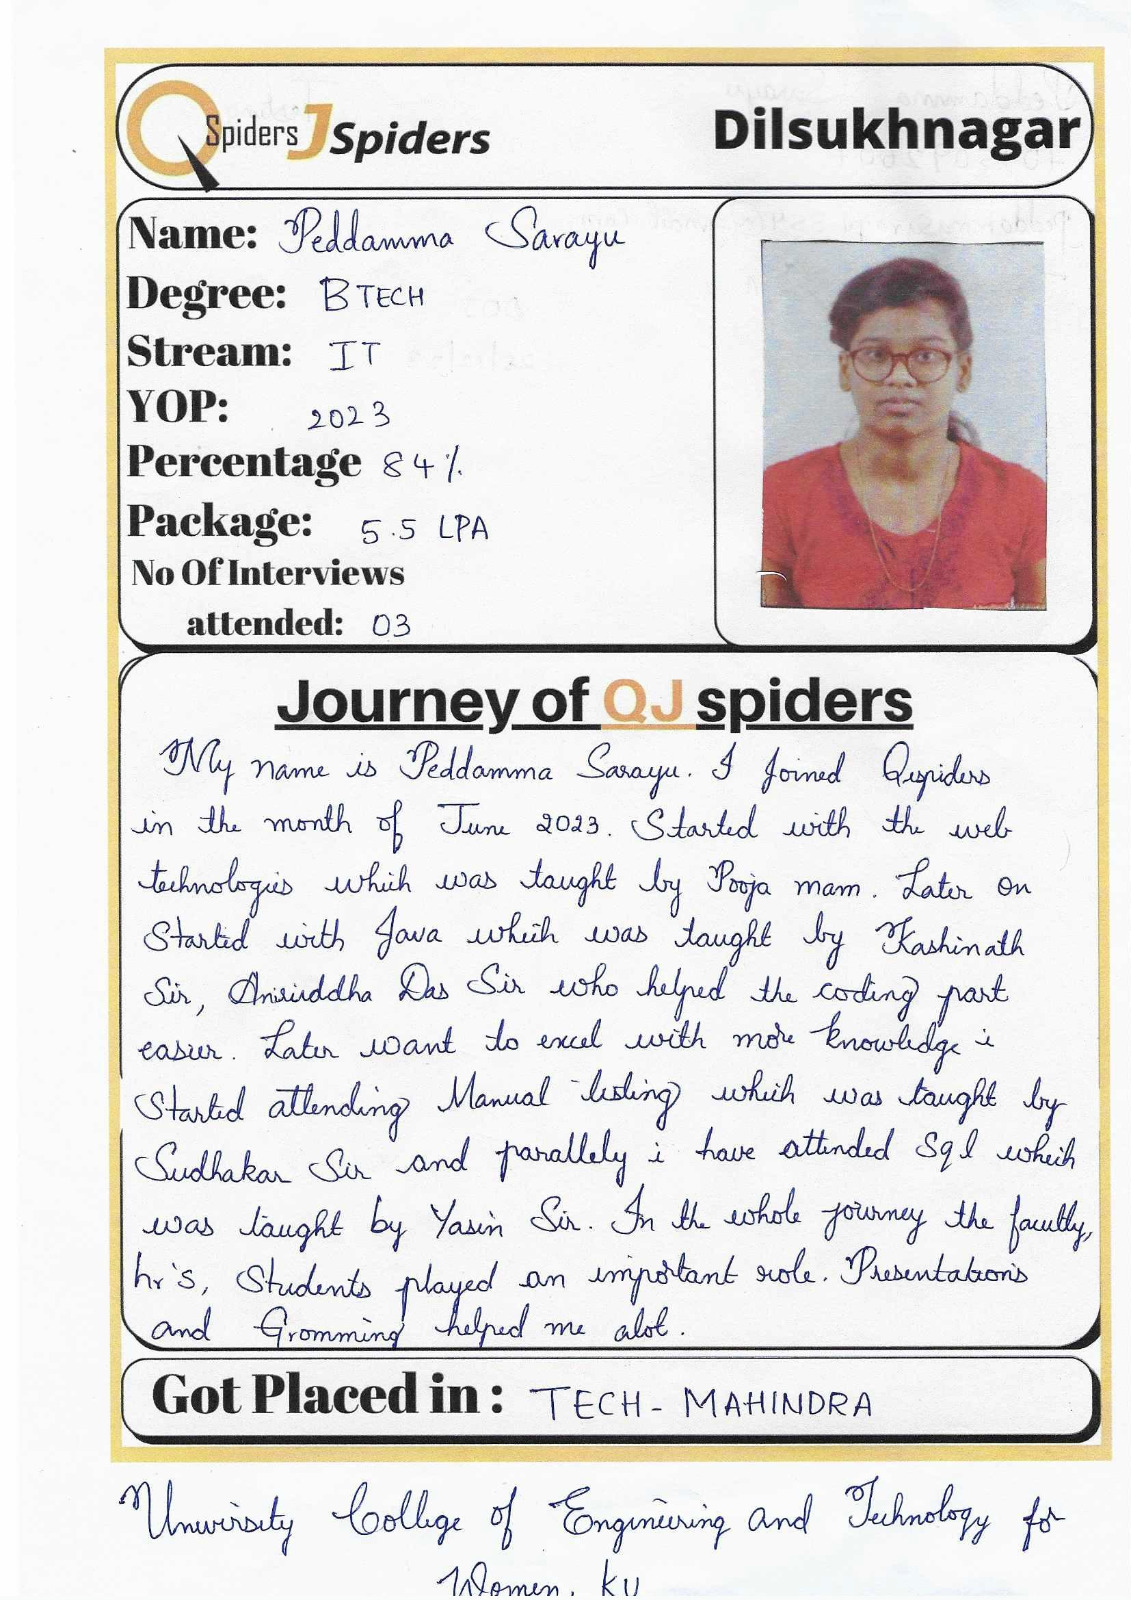 QSpiders JSpiders
Dilsukhnagar
Name: Peddamma Sarayu
Degree: BTECH
Stream: IT
YOP: 2023
Percentage 84%
Package: 5.5 LPA
No Of Interviews
attended: 03
Journey of QJ spiders
My name is Peddamma Sarayu. I Joined Qspiders
in the month of June 2023. Started with the web
technologies which was taught by Pooja mam. Later on
Started with Java which was taught by Kashinath
Sir, Aniruddha Das Sir who helped the coding part
easier. Later want to excel with more knowledge i
Started attending Manual testing which was taught by
Sudhakar Sir and parallely i have attended Sql which
was taught by Yasin Sir. In the whole journey the faculty,
hr's, Students played an important role. Presentations
and Gromming helped me alot.
Got Placed in : TECH - MAHINDRA
University College of Engineering and Technology for
Women, KU